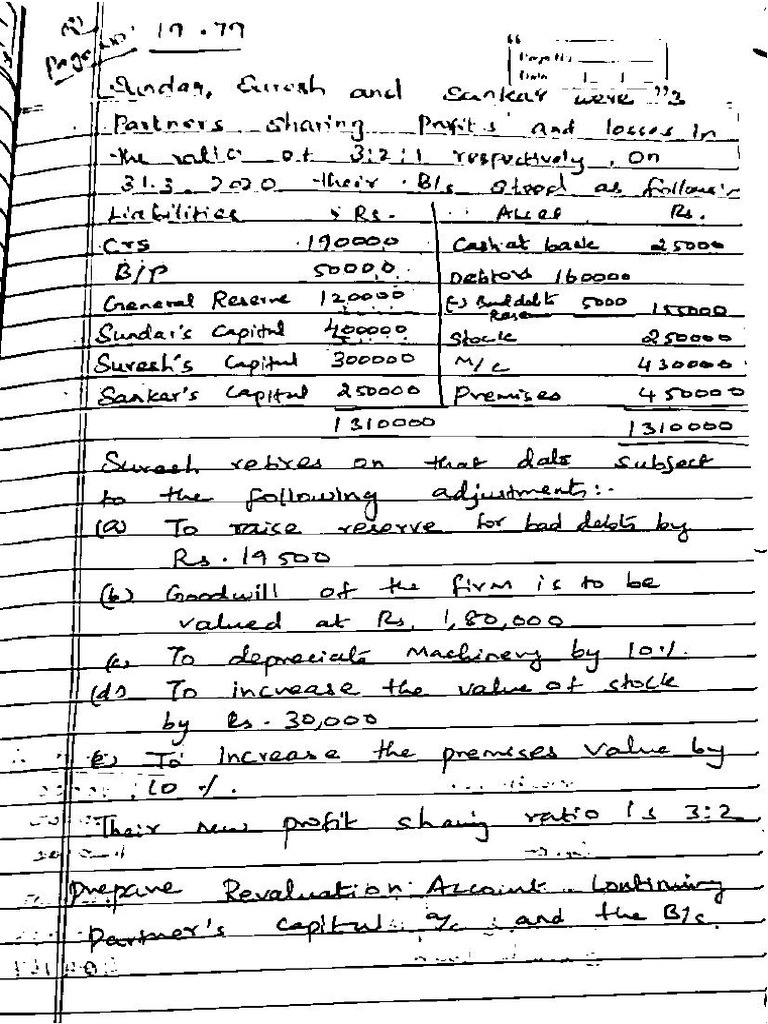 Page no: 19.79
Sundar, Suresh and Sankar were 3
Partners sharing Profits and losses in
the ratio of 3:2:1 respectively, on
31.3.2020 their B/s stood as follows:
Liabilities Rs. Rs.
Crs 190000 Cash at bank 25000
B/P 50000 Debtors 160000
General Reserve 120000 (-) Bad debts Reserve 5000 155000
Sundar's Capital 400000 Stock 250000
Suresh's Capital 300000 M/c 430000
Sankar's Capital 250000 Premises 450000
1310000 1310000
Suresh retires on that date subject
to the following adjustments:-
(a) To raise reserve for bad debts by
Rs. 19500
(b) Goodwill of the firm is to be
valued at Rs. 1,80,000
(c) To depreciate Machinery by 10%.
(d) To increase the value of stock
by Rs. 30,000
(e) To increase the premises value by
10%.
Their new profit sharing ratio is 3:2
Prepare Revaluation Account Continuing
Partner's capital a/c and the B/s.